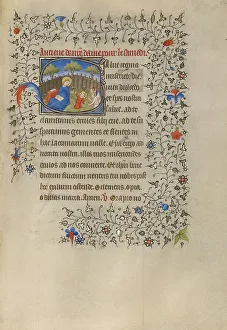 Antiene de nre dame pour le samedi
Salue regina
misericordie
et spes nostra
salue. ad te
clamamus exules filii eue. ad te su
spiramus gementes et flentes in
hac lacrimarum ualle. Eya ergo
aduocata nostra. illos tuos misericordes
oculos ad nos conuerte. Et ihm bene
dictum fructum uentris tui nobis post
hoc exilium ostende. O clemens. o pia
o dulcis maria. Amen. Oratio